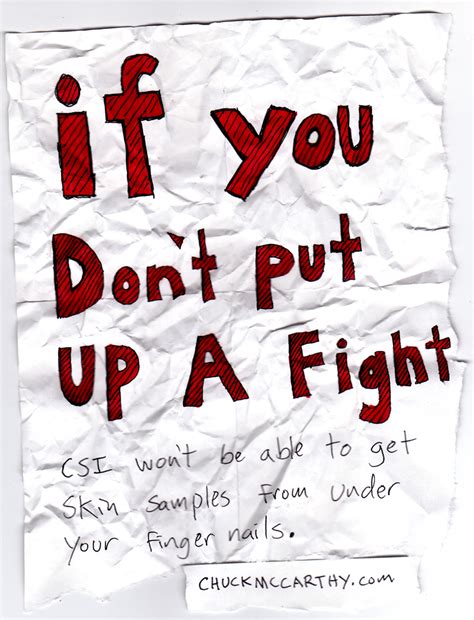 if you
Don't put
up A Fight
CSI won't be able to get
Skin samples from under
Your finger nails.
CHUCKMCCARTHY.com